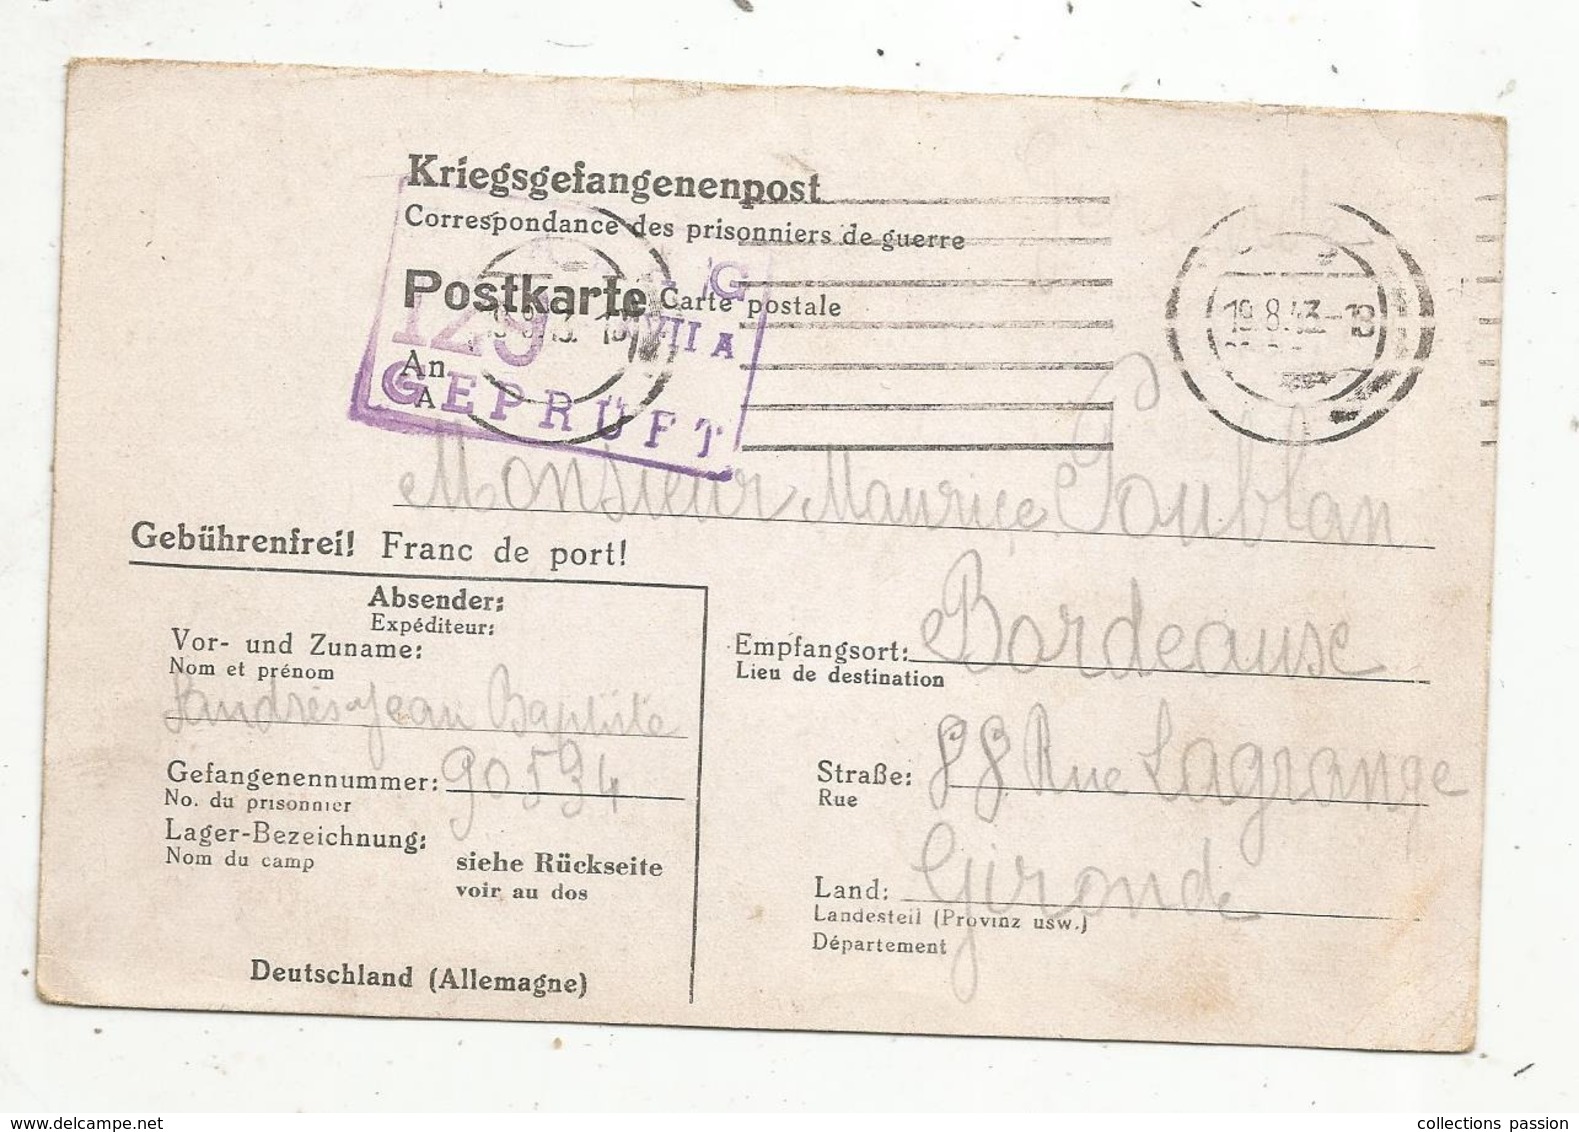 Kriegsgefangenenpost
Correspondance des prisonniers de guerre
Postkarte Carte postale
129
G
VII A
GEPRÜFT
19.8.43.-18
An
A
Monsieur Maurice Poublan
Gebührenfrei! Franc de port!
Absender:
Expéditeur:
Vor- und Zuname:
Nom et prénom
Landrès Jean Baptiste
Gefangenennummer: 90534
No. du prisonnier
Lager-Bezeichnung:
Nom du camp
siehe Rückseite
voir au dos
Deutschland (Allemagne)
Empfangsort: Bordeause
Lieu de destination
Straße: 88 Rue Lagrange
Rue
Land: Gironde
Landesteil (Provinz usw.)
Département
collections passion